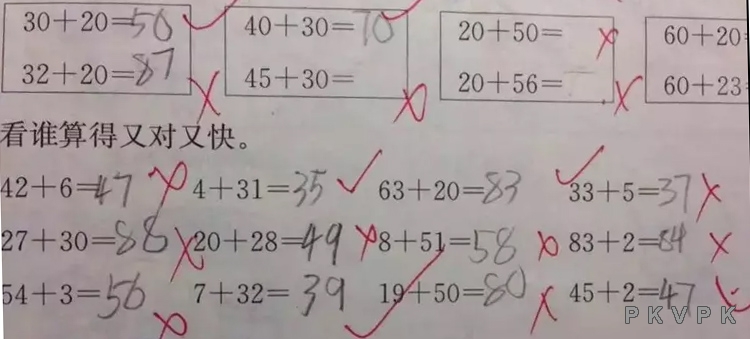 30+20=50 40+30=70 20+50= 60+20
32+20=87 45+30= 20+56= 60+23
看谁算得又对又快。
42+6=47 4+31=35 63+20=83 33+5=37
27+30=88 20+28=49 8+51=58 83+2=84
54+3=56 7+32=39 19+50=80 45+2=47
PKVPK